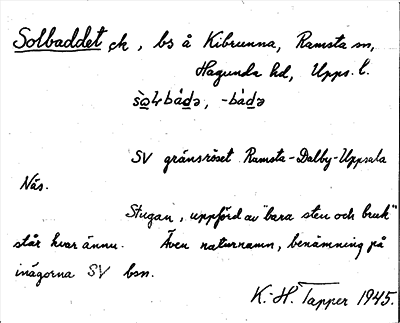 Solbaddet ck, bs å Kibrunna, Ramsta sn,
Hagunda hd, Upps. l.
sòlbádə, -bádə
SV gränsröset Ramsta-Dalby-Uppsala
Näs.
Stugan, uppförd av "bara sten och bruk"
står kvar ännu. Även naturnamn, benämning på
inägorna SV bsn.
K.-H. Tapper 1945.